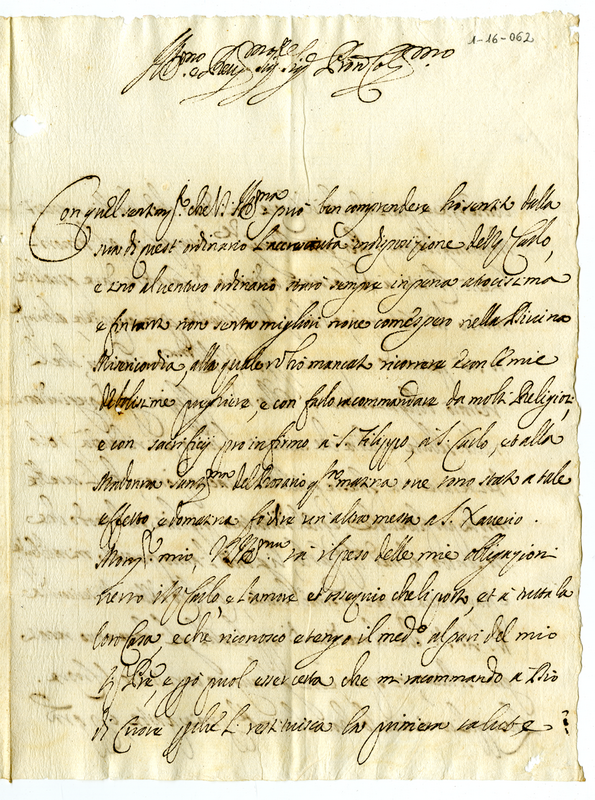 1-16-062
Ill.mo e Rev.
Con quel sentim.to che V. S. Ill.ma può ben comprendere ho sentit dalla
sua di quest ordinario l'accresciuta indisposizione del Sig. Carlo,
e sino al venturo ordinario starò sempre in pena atrocissima
e fintant non senta migliori nove come spero nella Divina
Misericordia, alla quale nò hò mancat ricorrere e con le mie
debolissime preghiere, e con farlo raccommandare da molti Religiosi,
e con sacrificij pro infirmo à S. Filippo, à S. Carlo, et alla
Madonna Sant.ma del Rosario q.sta matina ove sono stat a tale
effetto, e domatina fo dire un'altra messa a S. Xaverio.
Mons.r mio, V. S. Ill.ma sà il peso delle mie obligazioni
verso il Sig. Carlo, e l'amore et ossequio che li porto, et à tutta la
loro Casa, e che riconosco e tengo il med.o al pari del mio
Sig. Pre, e pò puol esser certa che mi raccommando a Dio
di cuore perche li restituisca la primiera salute